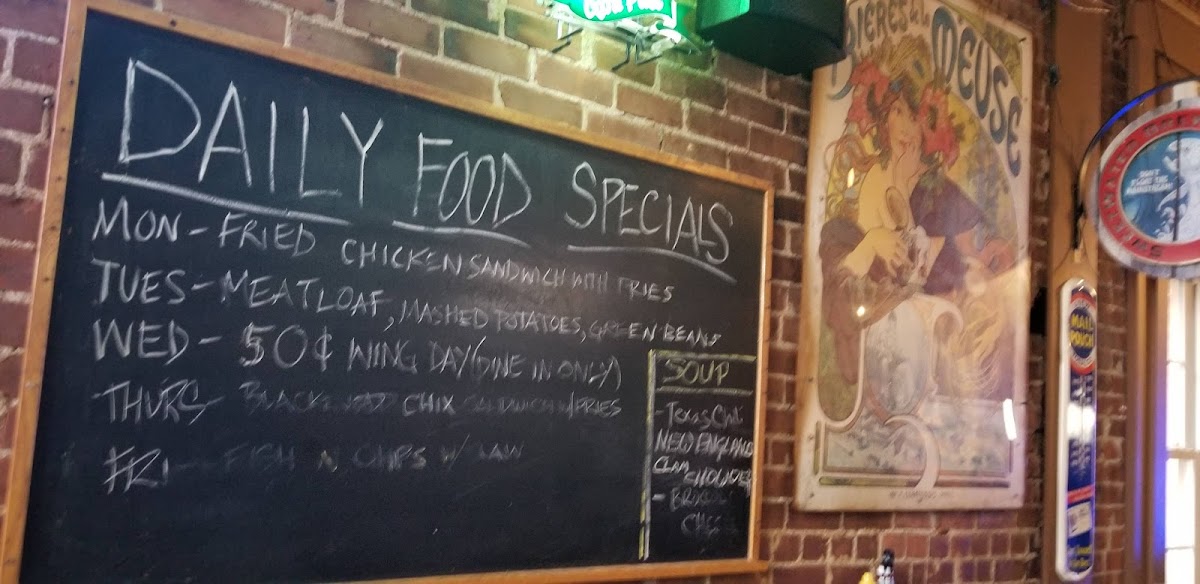 DAILY FOOD SPECIALS
MON - FRIED CHICKEN SANDWICH WITH FRIES
TUES - MEATLOAF, MASHED POTATOES, GREEN BEANS
WED - 50¢ WING DAY (DINE IN ONLY)
THURS CHIX SANDWICH W/FRIES
FRI - FISH N CHIPS W/ SLAW
SOUP
- Texas Chili
NEW ENGLAND
CLAM
CHOWDER
- 
BIERES de la
MEUSE
MAIL
POUCH